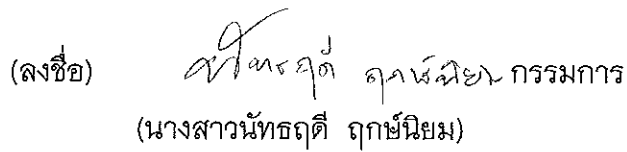 (ลงชื่อ) นัทธฤดี ฤกษ์นิยม กรรมการ
(นางสาวนัทธฤดี ฤกษ์นิยม)